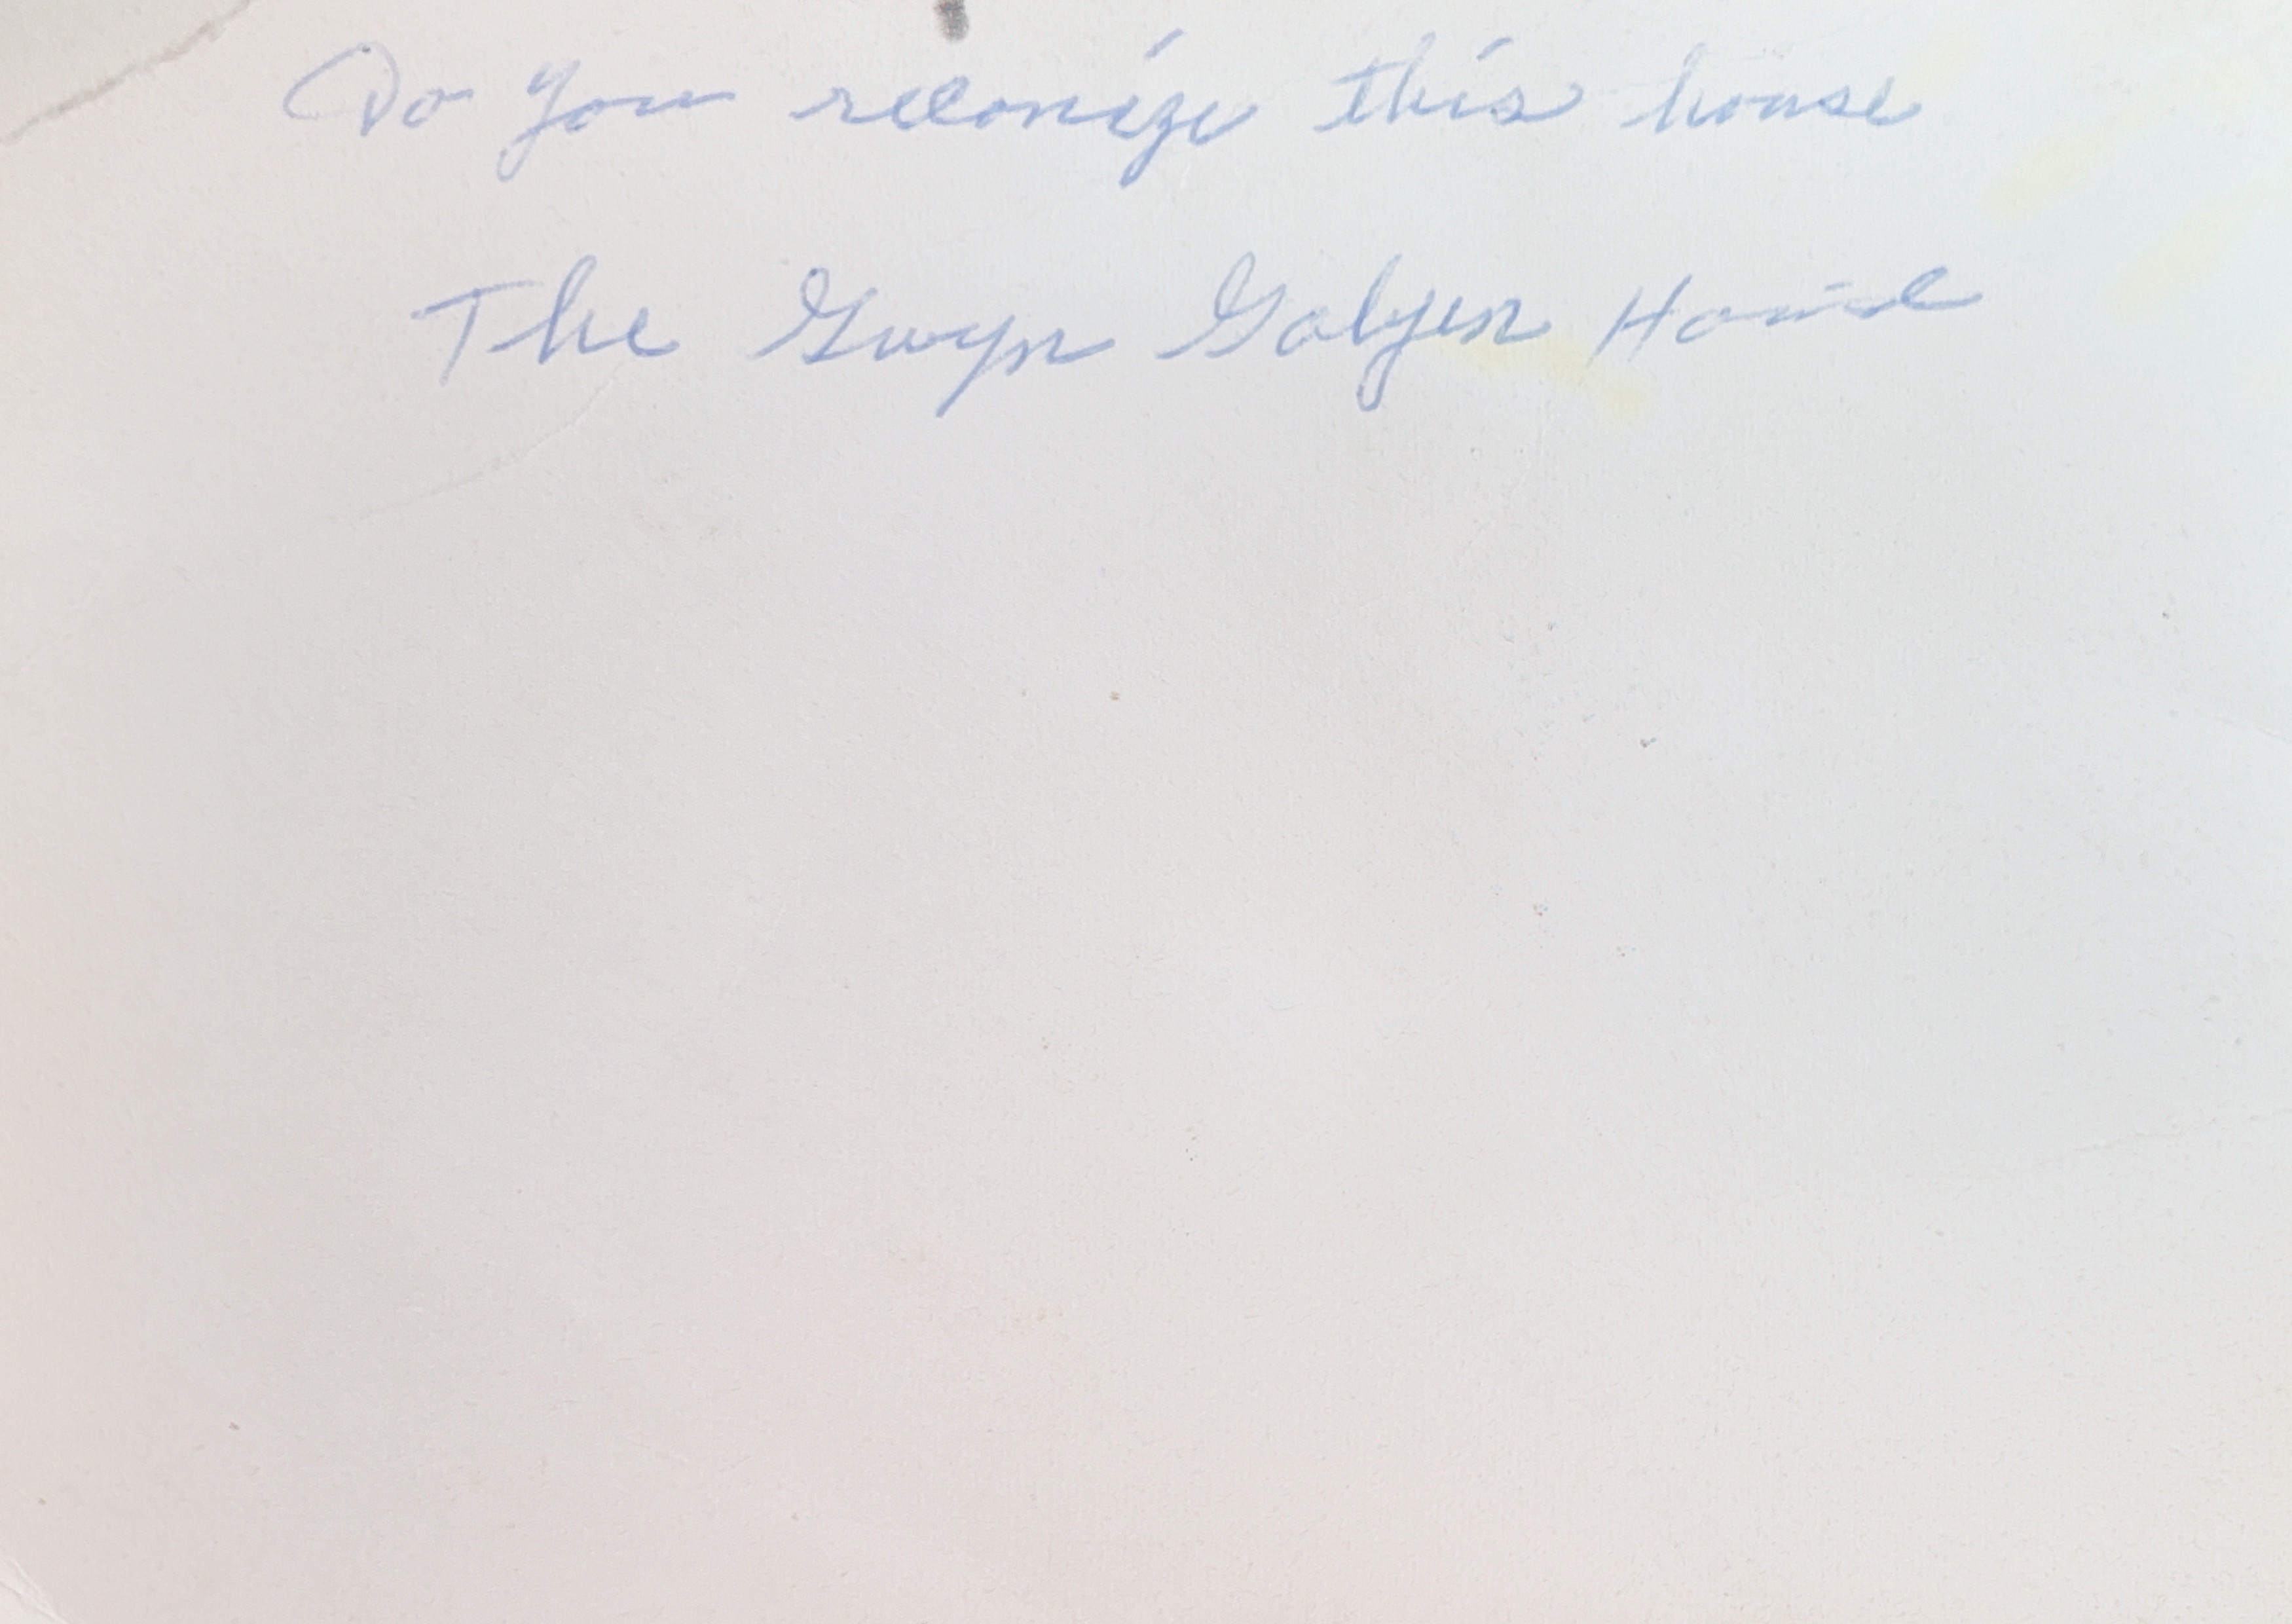 Do you reconize this house
The Gwyn Golyen Home